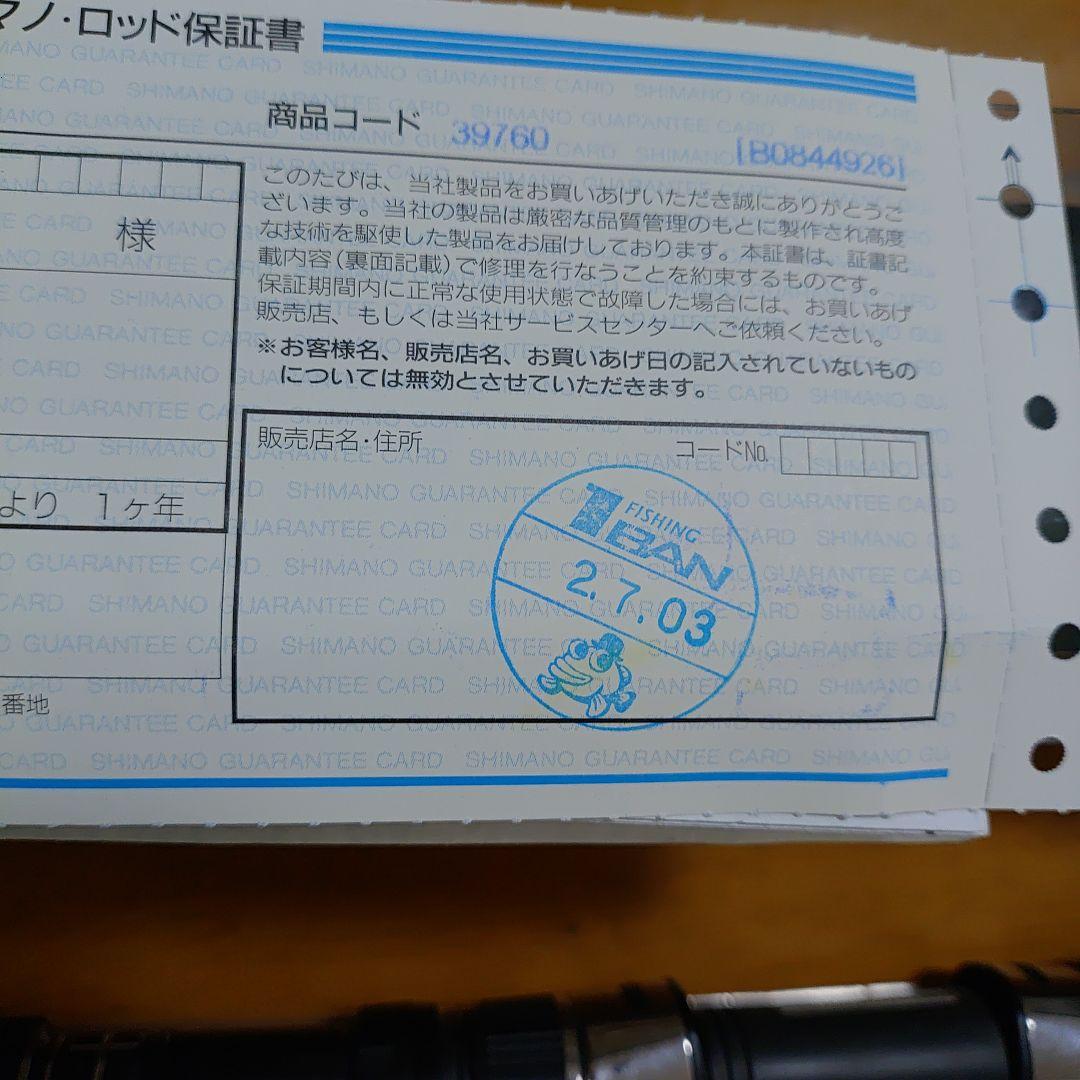 マノ・ロッド保証書
商品コード 39760 [B0844926]
このたびは、当社製品をお買いあげいただき誠にありがとうご
ざいます。当社の製品は厳密な品質管理のもとに製作され高度
な技術を駆使した製品をお届けしております。本証書は、証書記
載内容(裏面記載)で修理を行なうことを約束するものです。
保証期間内に正常な使用状態で故障した場合には、お買いあげ
販売店、もしくは当社サービスセンターへご依頼ください。
※お客様名、販売店名、お買いあげ日の記入されていないもの
については無効とさせていただきます。
様
より 1ヶ年
番地
販売店名・住所 コードNo.
1
FISHING
BAN
2.7.03
SHIMANO GUARANTEE CARD